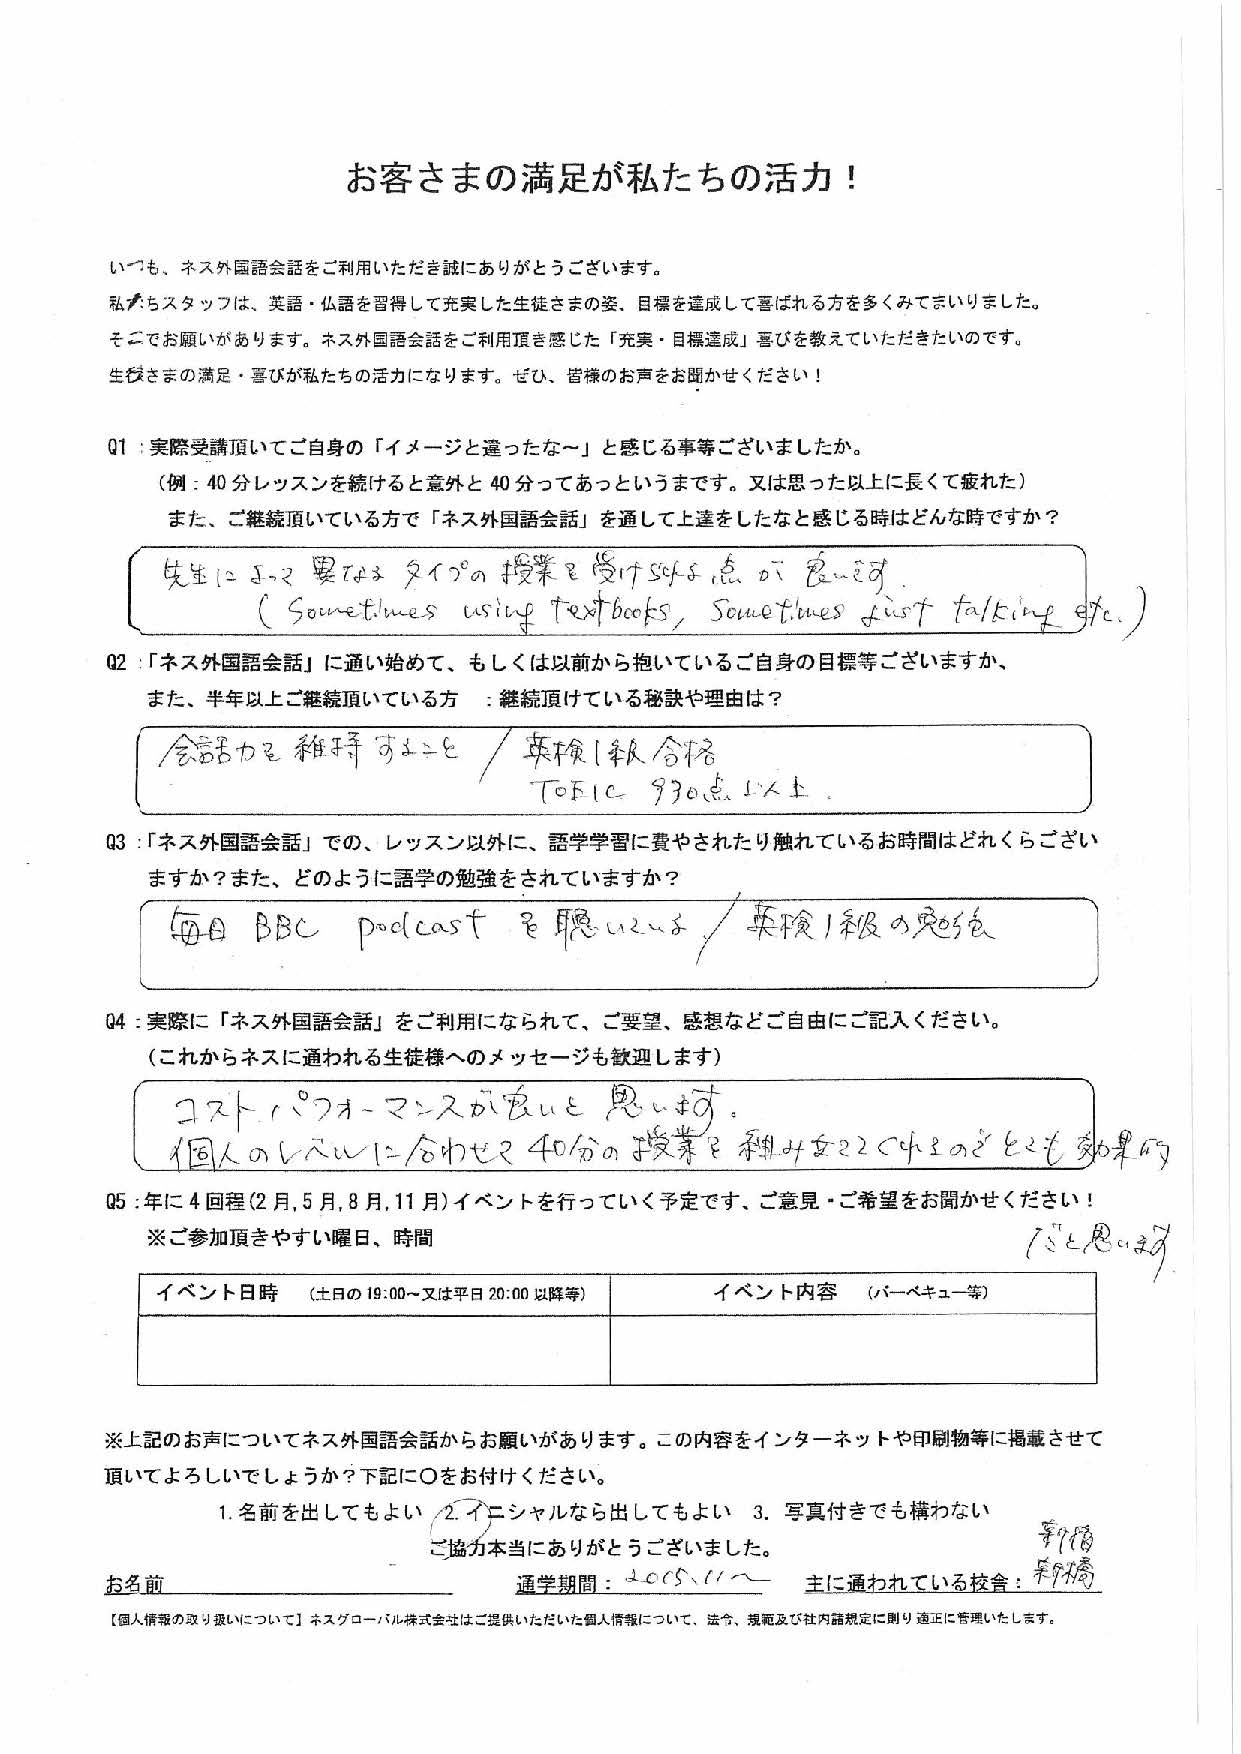 お客さまの満足が私たちの活力！
いつも、ネス外国語会話をご利用いただき誠にありがとうございます。
私たちスタッフは、英語・仏語を習得して充実した生徒さまの姿、目標を達成して喜ばれる方を多くみてまいりました。
そこでお願いがあります。ネス外国語会話をご利用頂き感じた「充実・目標達成」喜びを教えていただきたいのです。
生徒さまの満足・喜びが私たちの活力になります。ぜひ、皆様のお声をお聞かせください！
Q1：実際受講頂いてご自身の「イメージと違ったな～」と感じる事等ございましたか。
（例：40分レッスンを続けると意外と40分ってあっというまです。又は思った以上に長くて疲れた）
また、ご継続頂いている方で「ネス外国語会話」を通して上達をしたなと感じる時はどんな時ですか？
先生によって異なるタイプの授業を受けられる点が良いです。
(Sometimes using textbooks, sometimes just talking etc.)
Q2：「ネス外国語会話」に通い始めて、もしくは以前から抱いているご自身の目標等ございますか、
また、半年以上ご継続頂いている方　：継続頂けている秘訣や理由は？
会話力を維持すること / 英検1級合格
TOEIC 930点以上.
Q3：「ネス外国語会話」での、レッスン以外に、語学学習に費やされたり触れているお時間はどれくらござい
ますか？また、どのように語学の勉強をされていますか？
毎日 BBC podcast を聴いている / 英検1級の勉強
Q4：実際に「ネス外国語会話」をご利用になられて、ご要望、感想などご自由にご記入ください。
（これからネスに通われる生徒様へのメッセージも歓迎します）
コストパフォーマンスが良いと思います。
個人のレベルに合わせて40分の授業を組み立ててくれるのでとても効果的
だと思います
Q5：年に4回程(2月,5月,8月,11月)イベントを行っていく予定です、ご意見・ご希望をお聞かせください！
※ご参加頂きやすい曜日、時間
イベント日時　（土日の19:00～又は平日20:00以降等）　イベント内容　（バーベキュー等）
※上記のお声についてネス外国語会話からお願いがあります。この内容をインターネットや印刷物等に掲載させて
頂いてよろしいでしょうか？下記に〇をお付けください。
1. 名前を出してもよい　2. イニシャルなら出してもよい　3. 写真付きでも構わない
ご協力本当にありがとうございました。
新橋
お名前　通学期間：2015.11～　主に通われている校舎：新橋
【個人情報の取り扱いについて】ネスグローバル株式会社はご提供いただいた個人情報について、法令、規範及び社内諸規定に則り適正に管理いたします。